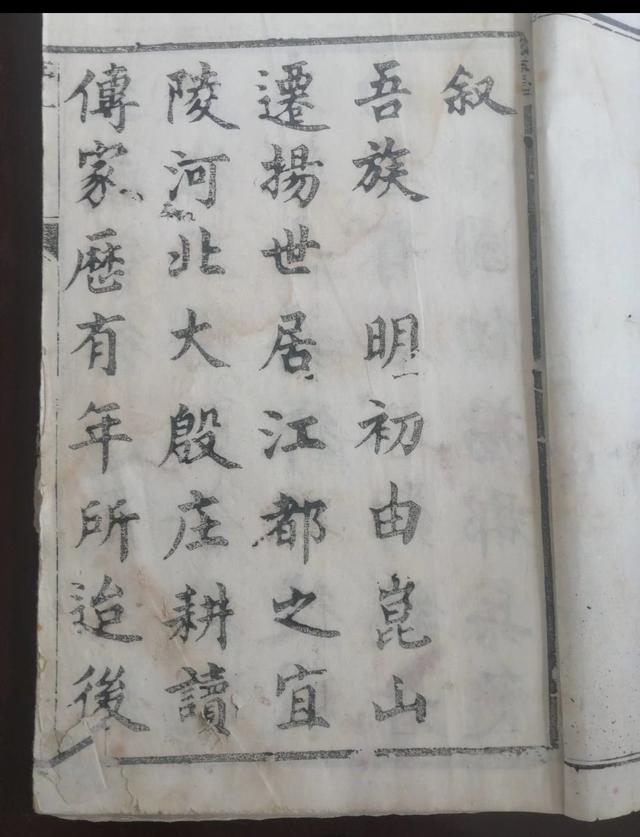 叙
吾族 明初由崑山
遷揚世居江都之宜
陵河北大殷庄耕讀
傳家歷有年所迨後